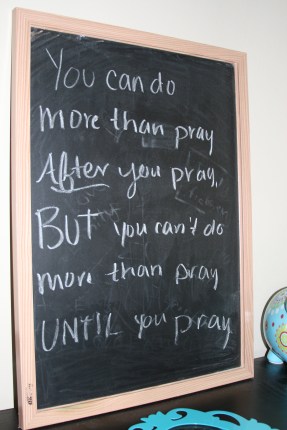 You can do
more than pray
After you pray,
BUT you can't do
more than pray
UNTIL you pray